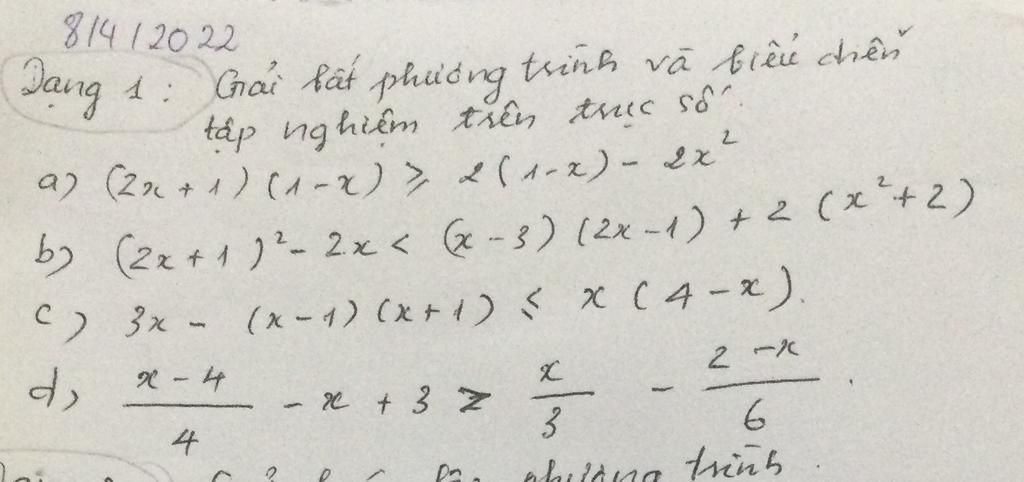 8/4/2022
Dạng 1: Giải bất phương trình và biểu diễn
tập nghiệm trên trục số.
a) (2x+1)(1-x) ≥ 2(1-x) - 2x²
b) (2x+1)² - 2x < (x-3)(2x-1) + 2(x²+2)
c) 3x - (x-1)(x+1) ≤ x(4-x).
d) \frac{x-4}{4} - x + 3 ≥ \frac{x}{3} - \frac{2-x}{6}.
phương trình.